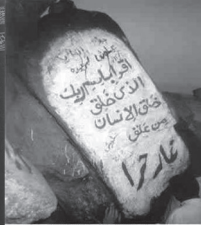 اقرا باسم ربك
الذى خلق
خلق الانسان
من علق
غار حرا